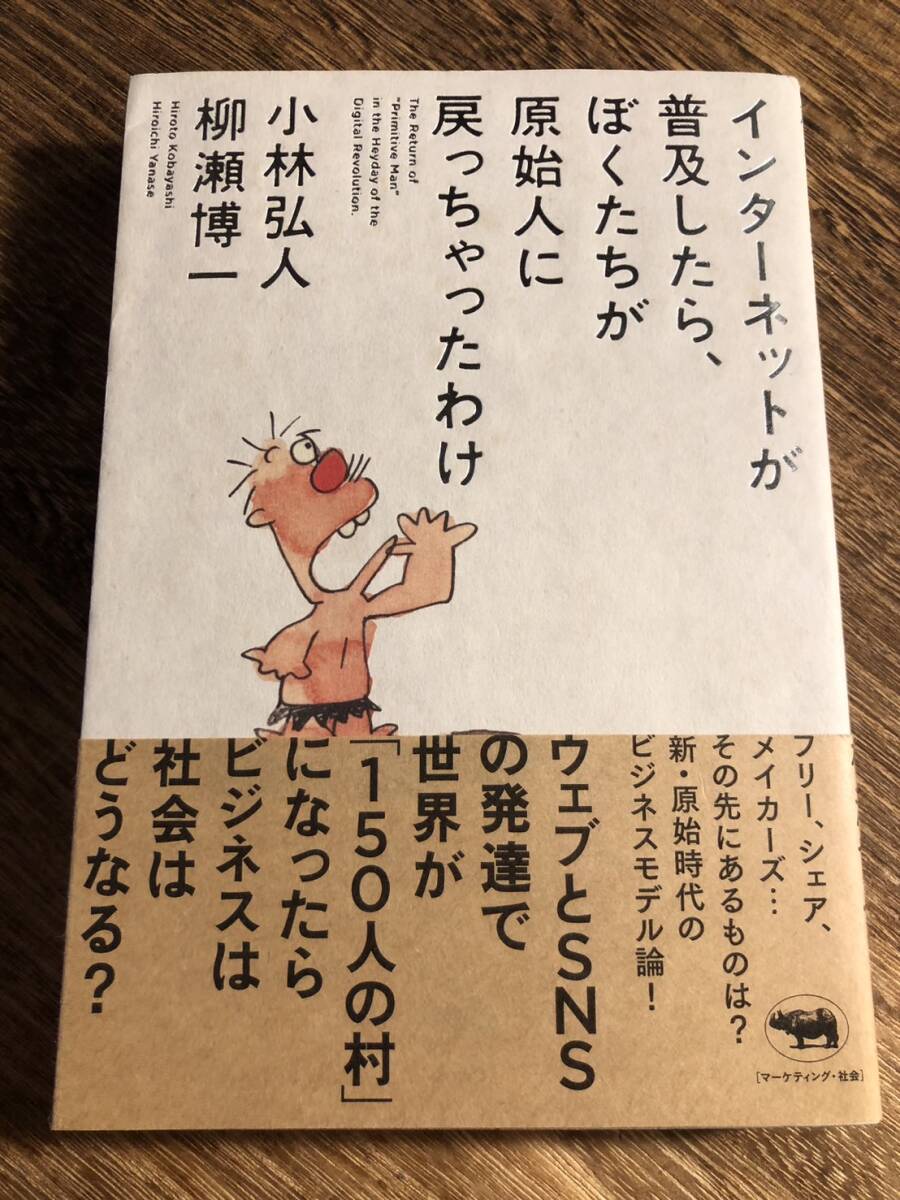 インターネットが
普及したら、
ぼくたちが
原始人に
戻っちゃったわけ
The Return of
"Primitive Man"
in the Heyday of the
Digital Revolution.
小林弘人
柳瀬博一
Hiroto Kobayashi
Hiroichi Yanase
フリー、シェア、
メイカーズ…
その先にあるものは?
新・原始時代の
ビジネスモデル論!
ウェブとSNS
の発達で
世界が
「150人の村」
になったら
ビジネスは
社会は
どうなる?
[マーケティング・社会]